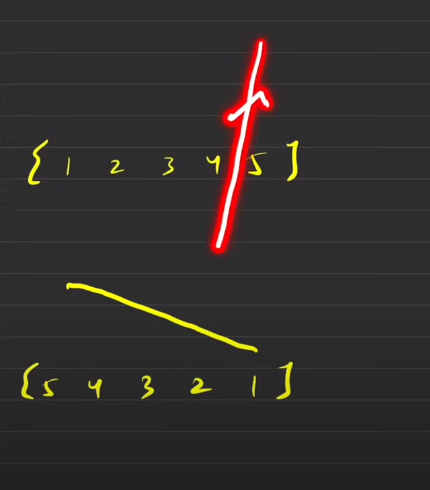 { 1 2 3 4 5 ]
{ 5 4 3 2 1 ]